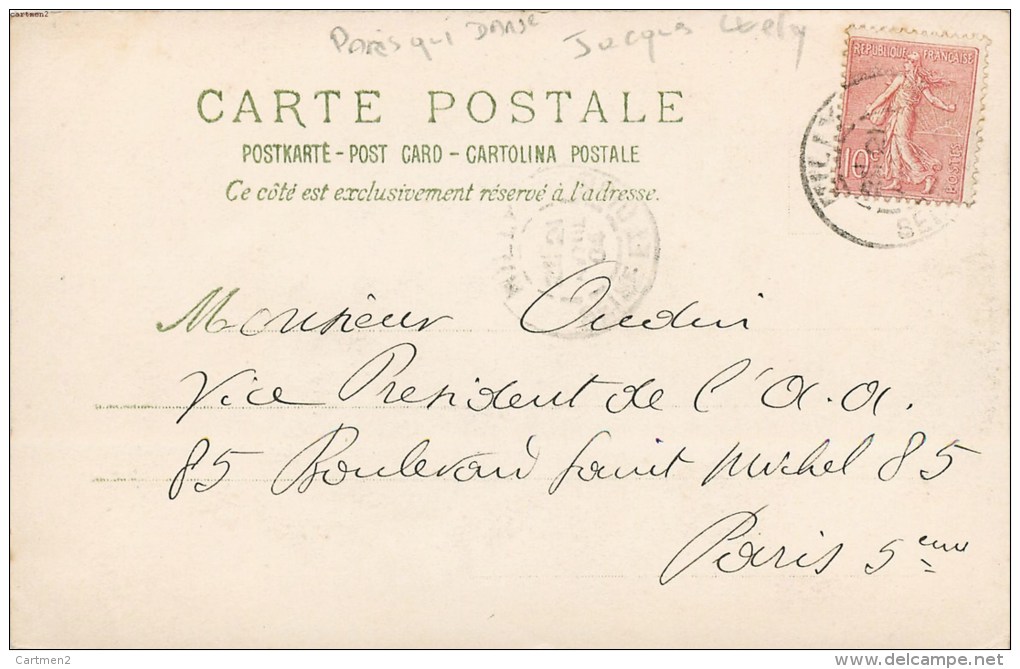 cartmen2
Paris qui Danse Jacques
RÉPUBLIQUE FRANÇAISE
10c POSTES
CARTE POSTALE
POSTKARTE - POST CARD - CARTOLINA POSTALE
Ce côté est exclusivement réservé à l'adresse.
Monsieur Oudin
Vice President de l'A.A.
85 Boulevard Saint Michel 85
Paris 5eme
Cartmen2
delcampe.net